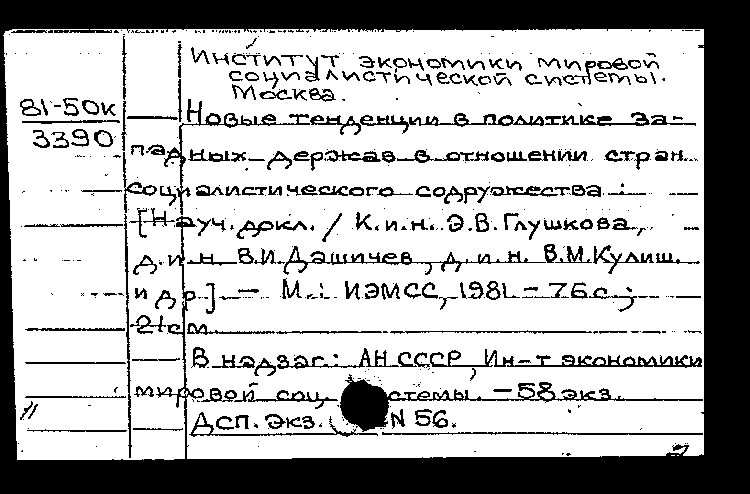 Институт экономики мировой
социалистической системы.
Москва.
81-50к
3390
Новые тенденции в политике за-
падных держав в отношении стран
социалистического содружества :
[Науч. докл. / К.и.н. Э.В.Глушкова,
д.и.н. В.И.Дашичев, д.и.н. В.М.Кулиш.
и др]. — М.: ИЭМСС, 1981. - 76с.;
21см.
В надзаг.: АН СССР, Ин-т экономики
мировой соц. стемы. - 58экз.
ДСП. Экз. N 56.